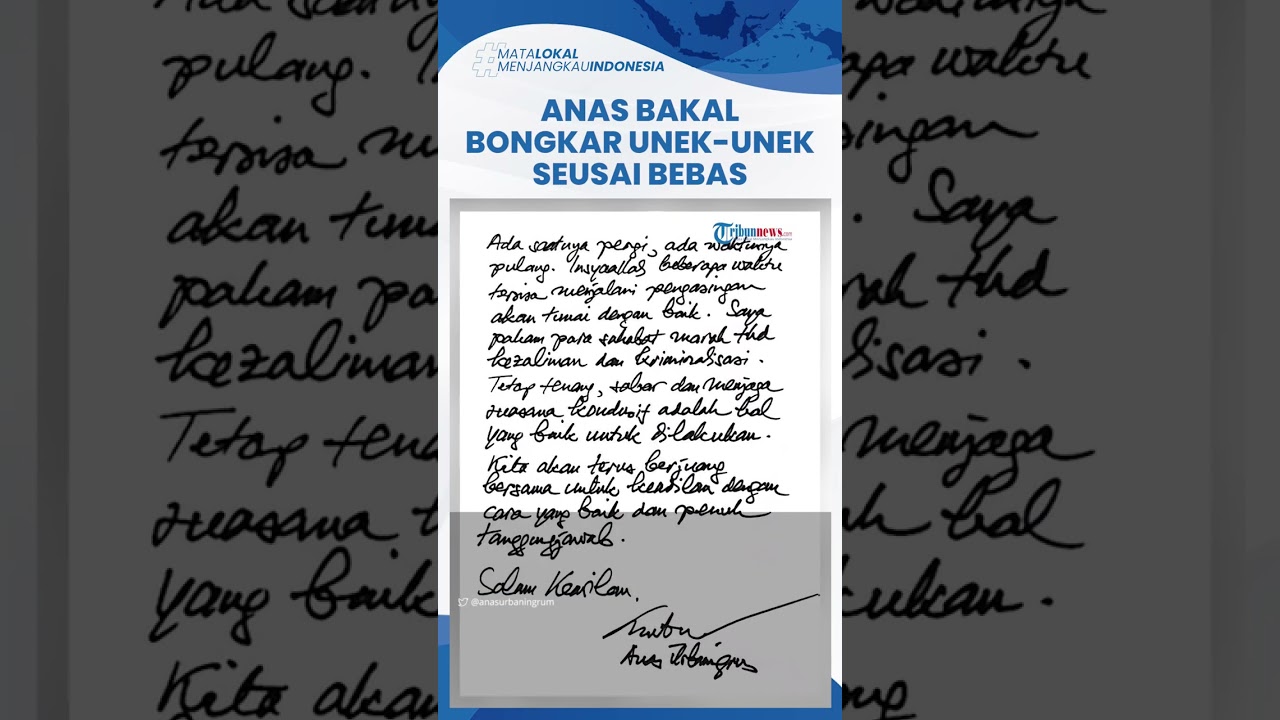 #MATALOKAL
MENJANGKAUINDONESIA
ANAS BAKAL
BONGKAR UNEK-UNEK
SEUSAI BEBAS
Tribunnews.com
Ada saatnya pergi, ada waktunya
pulang. Insyaallah beberapa waktu
tersisa menjalani pengasingan
akan tunai dengan baik. Saya
paham para sahabat marah thd
kezaliman dan kriminalisasi.
Tetap tenang, sabar dan menjaga
suasana kondusif adalah hal
yang baik untuk dilakukan.
Kita akan terus berjuang
bersama untuk keadilan dengan
cara yang baik dan penuh
tanggungjawab.
Salam Keadilan.
@anasurbaningrum
Anas Urbaningrum